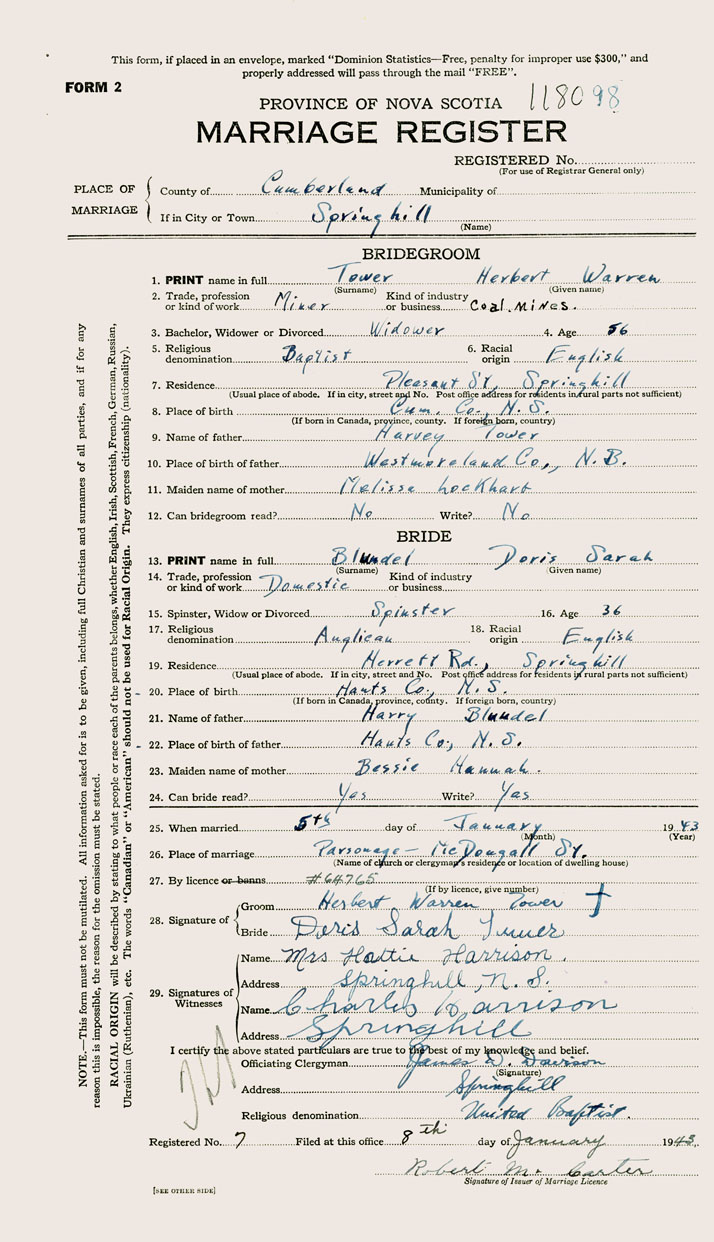 This form, if placed in an envelope, marked "Dominion Statistics—Free, penalty for improper use $300," and
properly addressed will pass through the mail "FREE".
FORM 2
PROVINCE OF NOVA SCOTIA 118098
MARRIAGE REGISTER
REGISTERED No.
(For use of Registrar General only)
PLACE OF MARRIAGE
County of Cumberland Municipality of
If in City or Town Springhill
(Name)
BRIDEGROOM
1. PRINT name in full Tower Herbert Warren
(Surname) (Given name)
2. Trade, profession or kind of work Miner Kind of industry or business Coal. Mines.
3. Bachelor, Widower or Divorced Widower 4. Age 56
5. Religious denomination Baptist 6. Racial origin English
7. Residence Pleasant St, Springhill
(Usual place of abode. If in city, street and No. Post office address for residents in rural parts not sufficient)
8. Place of birth Cum. Co., N. S.
(If born in Canada, province, county. If foreign born, country)
9. Name of father Harvey Tower
10. Place of birth of father Westmoreland Co., N. B.
11. Maiden name of mother Melissa Lockhart
12. Can bridegroom read? No Write? No
BRIDE
13. PRINT name in full Blundel Doris Sarah
(Surname) (Given name)
14. Trade, profession or kind of work Domestic Kind of industry or business
15. Spinster, Widow or Divorced Spinster 16. Age 36
17. Religious denomination Anglican 18. Racial origin English
19. Residence Herrett Rd., Springhill
(Usual place of abode. If in city, street and No. Post office address for residents in rural parts not sufficient)
20. Place of birth Hants Co., N. S.
(If born in Canada, province, county. If foreign born, country)
21. Name of father Harry Blundel
22. Place of birth of father Hants Co., N. S.
23. Maiden name of mother Bessie Hannah.
24. Can bride read? Yes Write? Yas
25. When married 5th day of January 1943
(Month) (Year)
26. Place of marriage Parsonage - McDougall St.
(Name of church or clergyman's residence or location of dwelling house)
27. By licence or banns #64765
(If by licence, give number)
28. Signature of
Groom Herbert Warren Tower
Bride Doris Sarah
29. Signatures of Witnesses
Name Mrs Hattie Harrison.
Address Springhill, N. S.
Name Charles Harrison
Address Springhill
I certify the above stated particulars are true to the best of my knowledge and belief.
Officiating Clergyman James D. Davison
(Signature)
Address Springhill
Religious denomination United Baptist.
Registered No. 7 Filed at this office 8th day of January 1943.
Robert M. Carter
Signature of Issuer of Marriage Licence
[SEE OTHER SIDE]
NOTE.—This form must not be mutilated. All information asked for is to be given, including full Christian and surnames of all parties, and if for any
reason this is impossible, the reason for the omission must be stated.
RACIAL ORIGIN will be described by stating to what people or race each of the parents belongs, whether English, Irish, Scottish, French, German, Russian,
Ukrainian (Ruthenian), etc. The words "Canadian" or "American" should not be used for Racial Origin. They express citizenship (nationality).